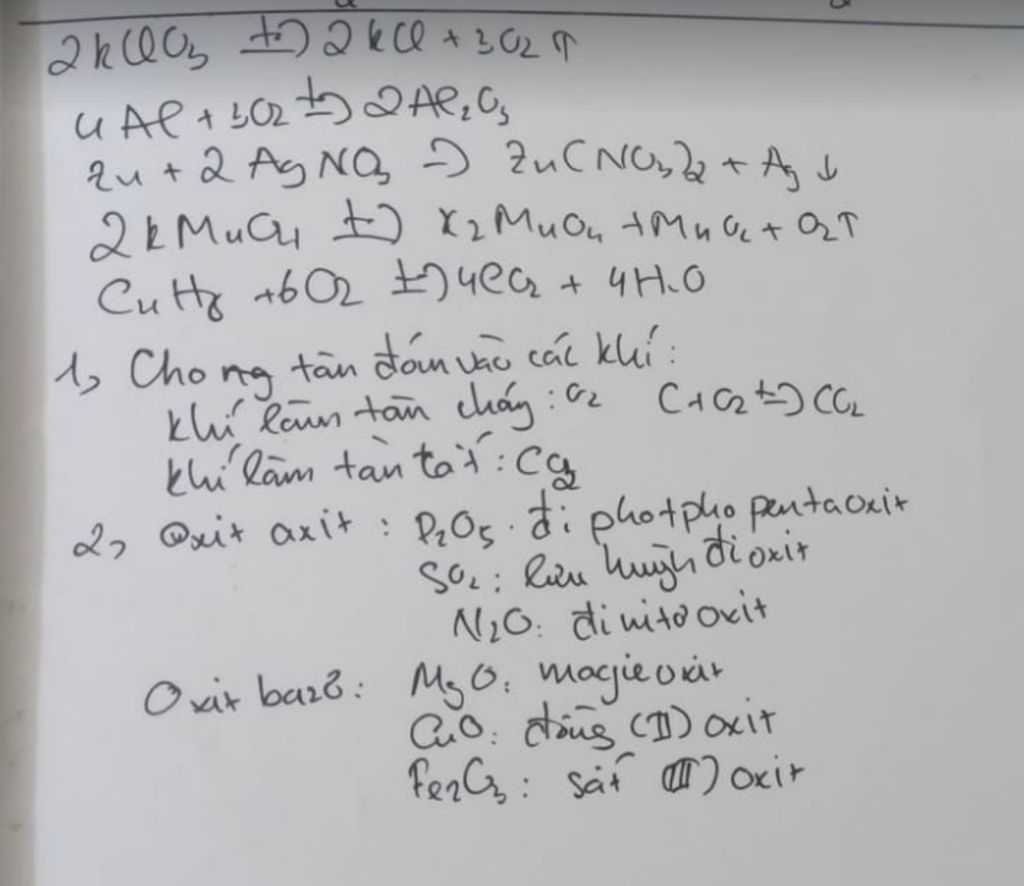 2KClO3 t°→ 2KCl + 3O2 ↑
4Al + 3O2 t°→ 2Al2O3
Zn + 2AgNO3 → Zn(NO3)2 + Ag ↓
2KMnO4 t°→ K2MnO4 + MnO2 + O2 ↑
C4H8 + 6O2 t°→ 4CO2 + 4H2O
1, Cho ng tàn đóm vào các khí:
khí làm tàn cháy: O2 C + O2 t°→ CO2
khí làm tàn tắt: CO2
2, Oxit axit: P2O5. đi photpho pentaoxit
SO2: lưu huỳnh đioxit
N2O: đi nitơ oxit
Oxit bazơ: MgO: magie oxit
CuO: đồng (II) oxit
Fe2O3: sắt (III) oxit